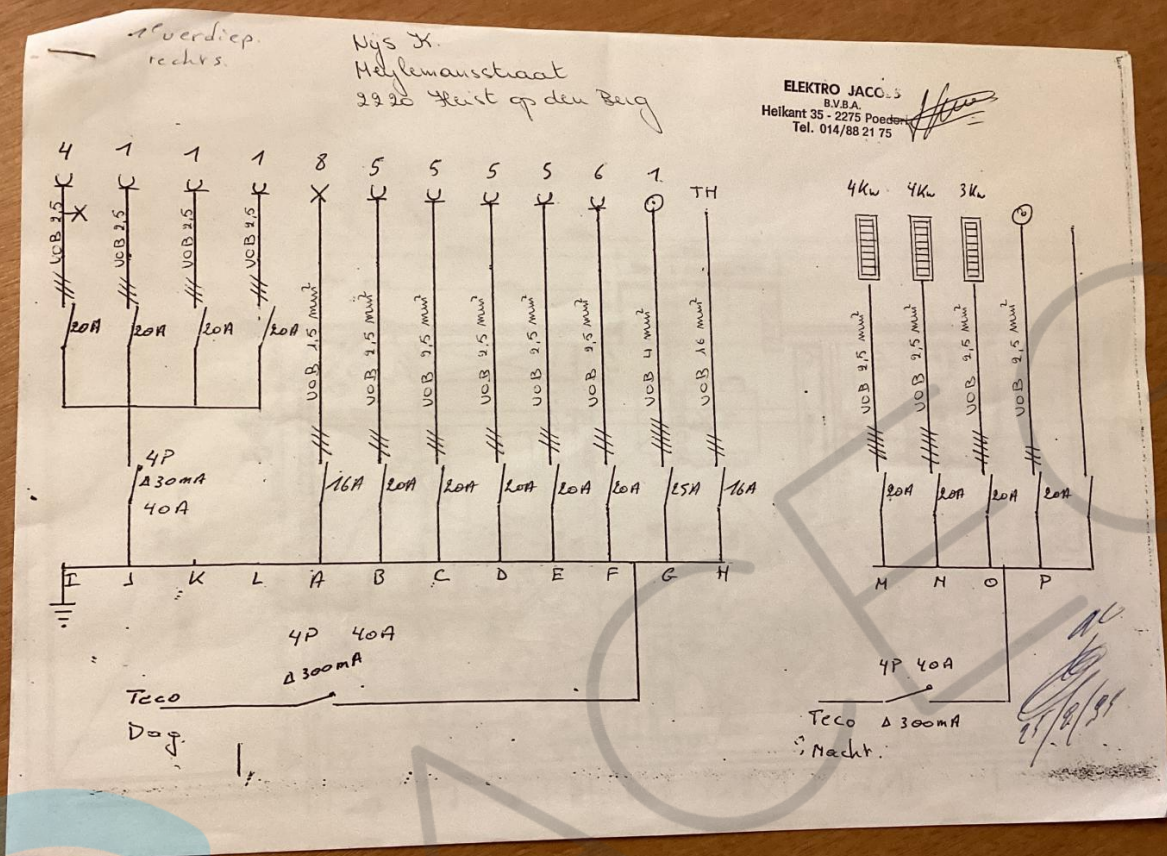 1e verdiep.
rechts.
Nijs K.
Meylemansstraat
2220 Heist op den Berg
ELEKTRO JACOBS
B.V.B.A.
Heikant 35 - 2275 Poederl
Tel. 014/88 21 75
4 1 1 1 8 5 5 5 5 6 1 TH
4Kw 4Kw 3Kw
VOB 2,5
VOB 2,5
VOB 2,5
VOB 2,5
VOB 1,5 mm²
VOB 2,5 mm²
VOB 2,5 mm²
VOB 2,5 mm²
VOB 2,5 mm²
VOB 2,5 mm²
VOB 4 mm²
VOB 16 mm²
VOB 2,5 mm²
VOB 2,5 mm²
VOB 2,5 mm²
VOB 2,5 mm²
20A 20A 20A 20A
16A 20A 20A 20A 20A 20A 25A 16A
20A 20A 20A 20A
4P
Δ30mA
40A
I J K L A B C D E F G H
M N O P
4P 40A
Δ300mA
Teco
Dag.
4P 40A
Teco Δ 300mA
Nacht.
ACEC